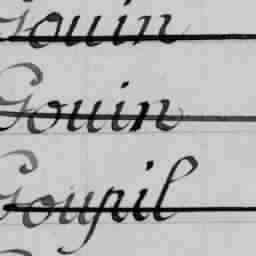 Gouin
Gouin
Goupil